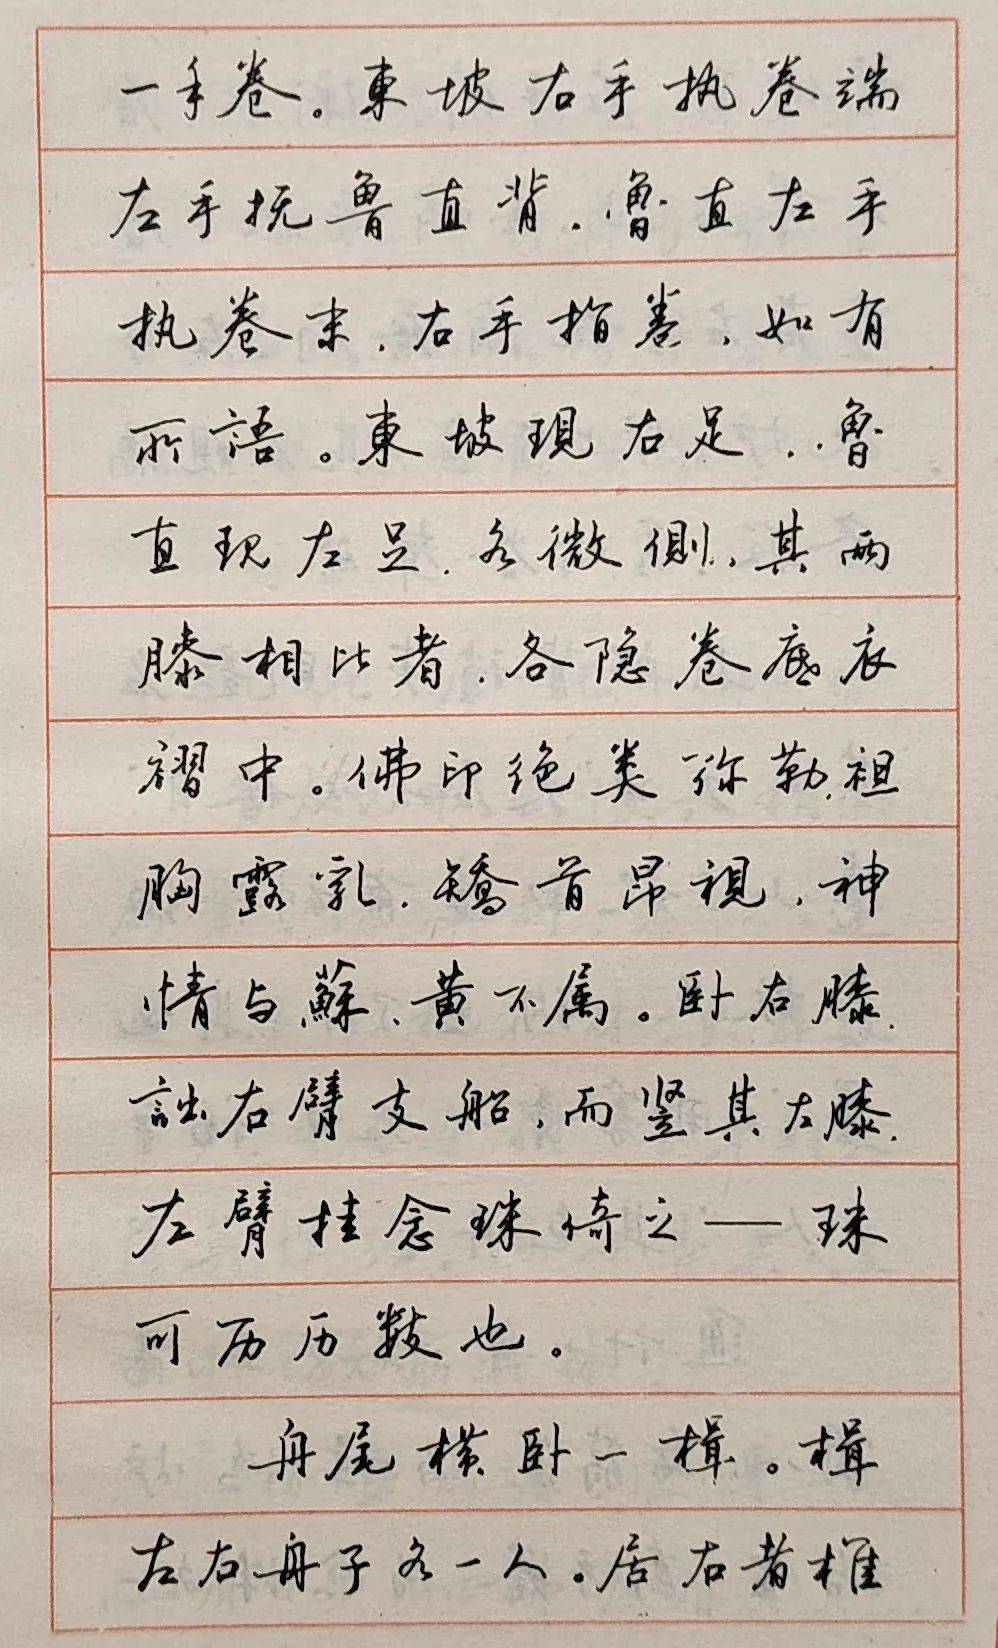 一手卷。東坡右手执卷端
左手抚魯直背，魯直左手
执卷末，右手指卷，如有
所語。東坡現右足，魯
直现左足，各微側，其两
膝相比者，各隐卷底衣
褶中。佛印绝类弥勒，袒
胸露乳，矯首昂視，神
情与蘇、黄不属。卧右膝，
詘右臂支船，而竖其左膝，
左臂挂念珠倚之——珠
可历历数也。
舟尾横卧一楫。楫
左右舟子各一人。居右者椎